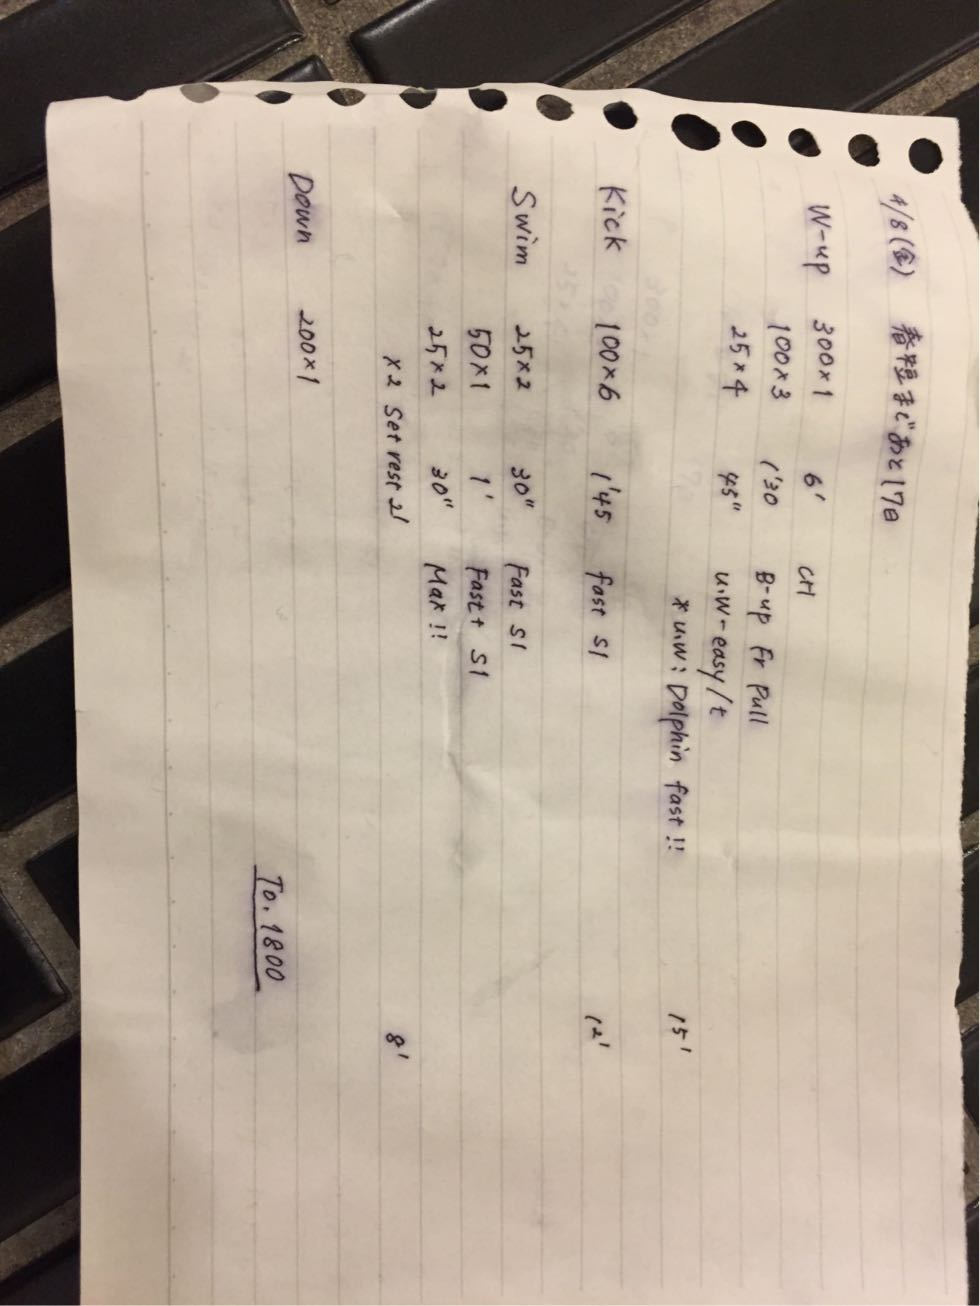 4/8(金) 春短まであと17日
W-up 300×1 6' CH
100×3 1'30 B-up Fr Pull
25×4 45" u.w-easy/t
*u.w: Dolphin fast!! 15'
Kick 100×6 1'45 fast S1 12'
Swim 25×2 30" Fast S1
50×1 1' Fast+ S1
25×2 30" Max!!
×2 Set rest 2' 8'
Down 200×1
To. 1800